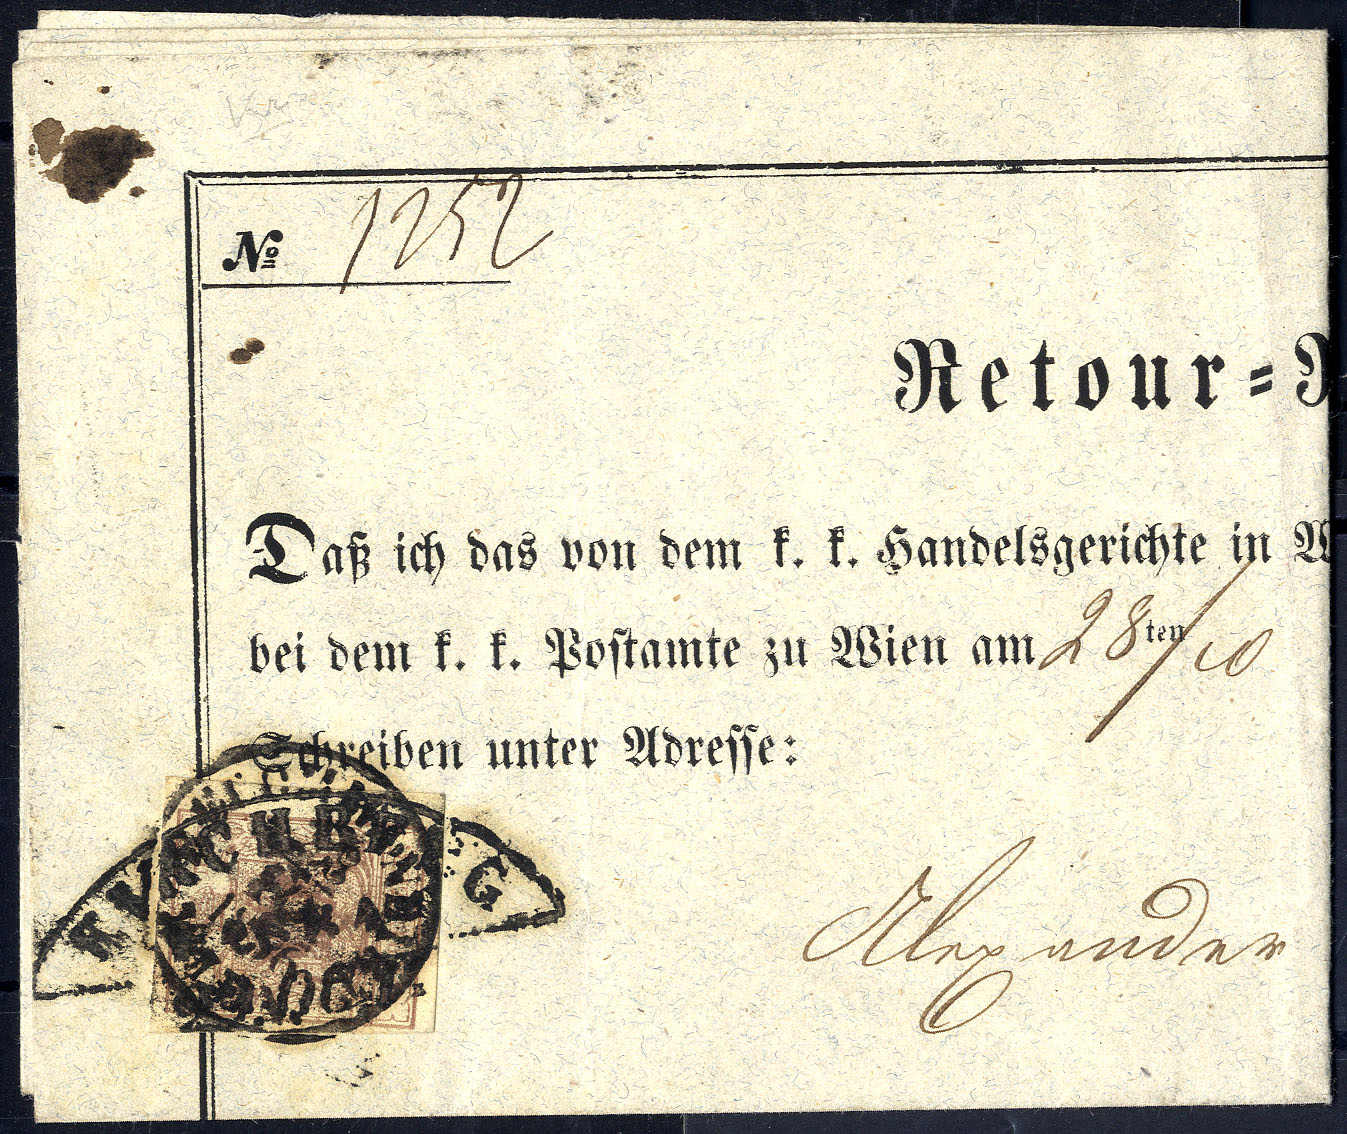 No 1252
Retour=
Daß ich das von dem k. k. Handelsgerichte in W
bei dem k. k. Postamte zu Wien am 28ten/10
Schreiben unter Adresse:
Alexander